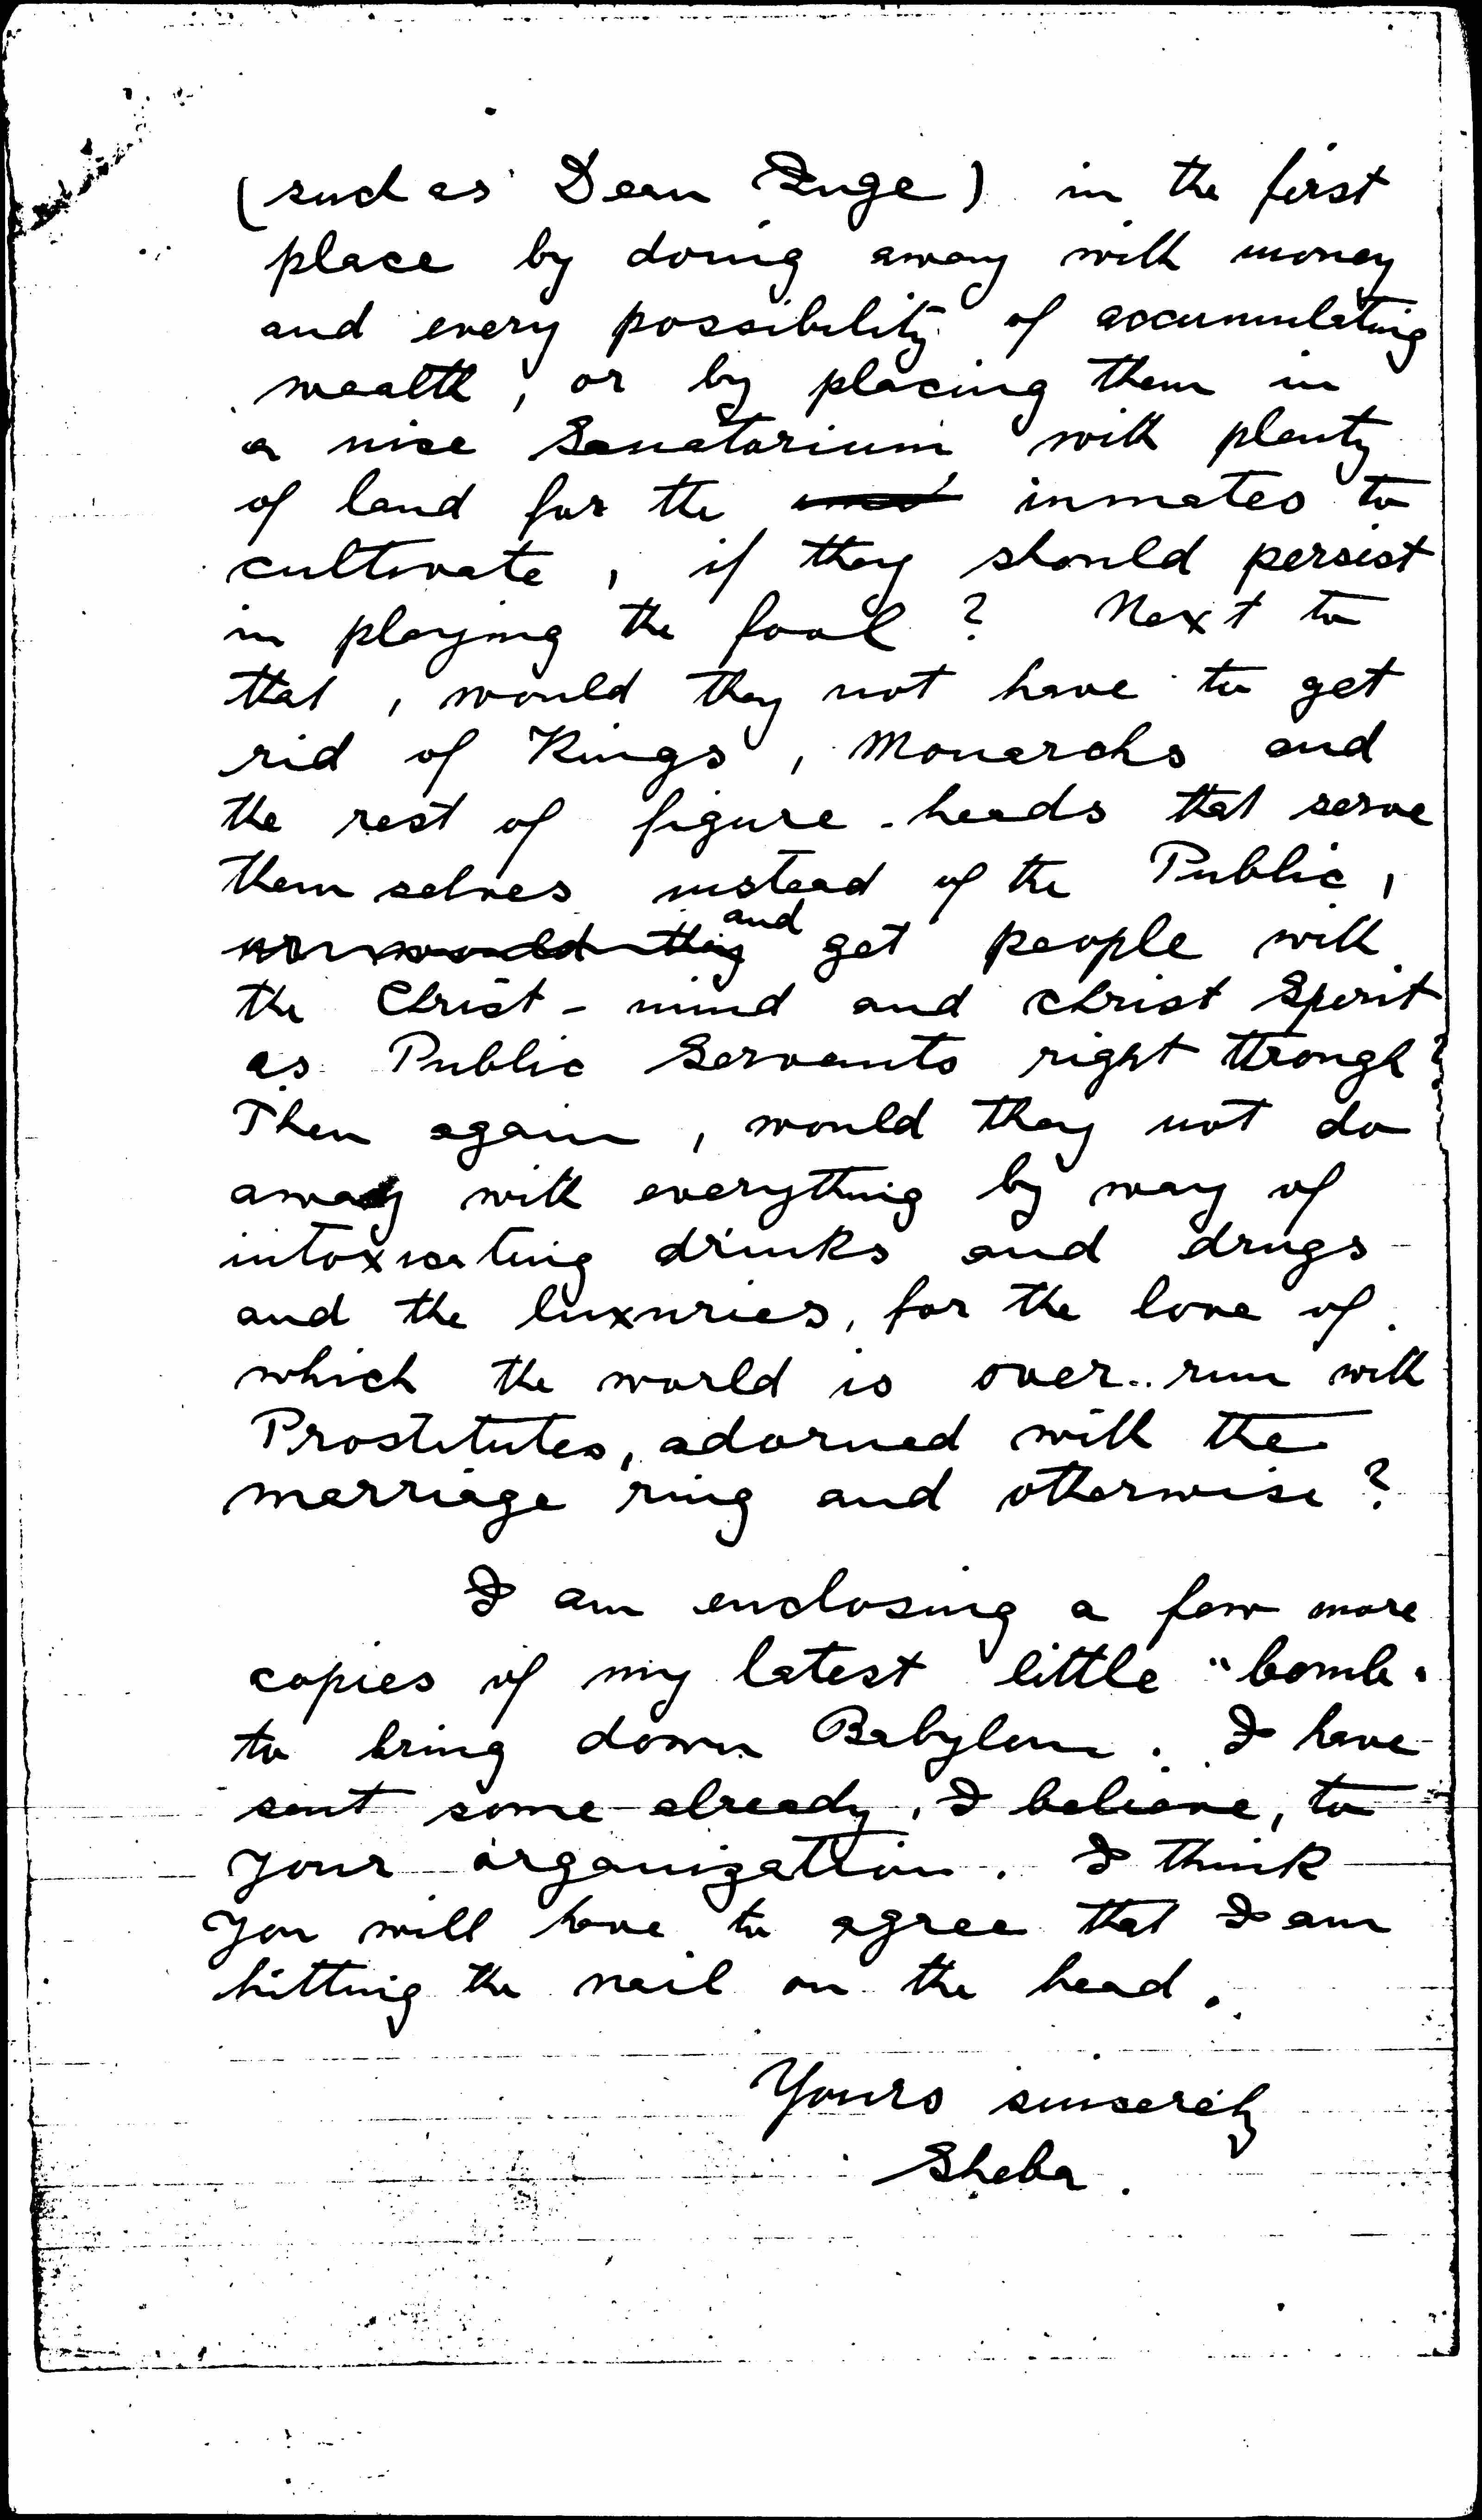 (such as Dean Inge) in the first
place by doing away with money
and every possibility of accumulating
wealth, or by placing them in
a nice Sanatorium with plenty
of land for the inmates to
cultivate, if they should persist
in playing the fool? Next to
that, would they not have to get
rid of Kings, Monarchs and
the rest of figure-heads that serve
them selves instead of the Public,
or would they and get people with
the Christ-mind and Christ Spirit
as Public Servants right through?
Then again, would they not do
away with everything by way of
intoxicating drinks and drugs
and the luxuries, for the love of
which the world is over-run with
Prostitutes, adorned with the
marriage ring and otherwise?
I am enclosing a few more
copies of my latest little "bomb"
to bring down Babylon. I have
sent some already, I believe, to
your organization. I think
you will have to agree that I am
hitting the nail on the head.
Yours sincerely
Sheba.